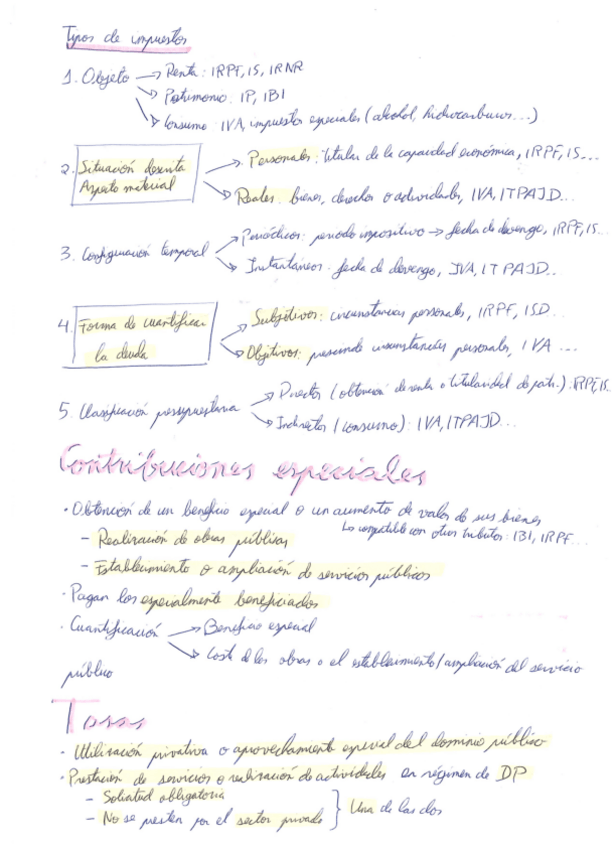 Tipos de impuestos
1. Objeto → Renta: IRPF, IS, IRNR
→ Patrimonio: IP, IBI
→ Consumo: IVA, impuestos especiales (alcohol, hidrocarburos...)
2. Situación descrita → Personales: titular de la capacidad económica, IRPF, IS...
Aspecto material → Reales: bienes, derechos o actividades, IVA, ITPAJD...
3. Configuración temporal → Periódicos: periodo impositivo → fecha de devengo, IRPF, IS...
→ Instantáneos: fecha de devengo, IVA, ITPAJD...
4. Forma de cuantificar → Subjetivos: circunstancias personales, IRPF, ISD...
la deuda → Objetivos: prescinde circunstancias personales, IVA ...
5. Clasificación presupuestaria → Directos (obtención de renta o titularidad de patr.): IRPF, IS..
→ Indirectos (consumo): IVA, ITPAJD...
Contribuciones especiales
· Obtención de un beneficio especial o un aumento de valor de sus bienes
↳ compatible con otros tributos: IBI, IRPF...
– Realización de obras públicas
– Establecimiento o ampliación de servicios públicos
· Pagan los especialmente beneficiados
· Cuantificación → Beneficio especial
→ Coste de las obras o el establecimiento/ampliación del servicio
público
Tasas
· Utilización privativa o aprovechamiento especial del dominio público
· Prestación de servicios o realización de actividades en régimen de DP
– Solicitud obligatoria
– No se presten por el sector privado } Una de las dos